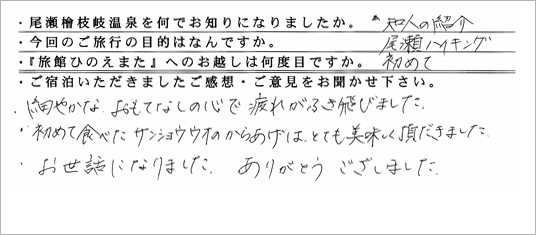 ・尾瀬檜枝岐温泉を何でお知りになりましたか。 知人の紹介
・今回のご旅行の目的はなんですか。 尾瀬ハイキング
・『旅館ひのえまた』へのお越しは何度目ですか。 初めて
・ご宿泊いただきましたご感想・ご意見をお聞かせ下さい。
・細やかな、おもてなしの心で疲れがふき飛びました。
・初めて食べたサンショウウオのからあげは、とても美味しく頂だきました。
・お世話になりました。ありがとうございました。